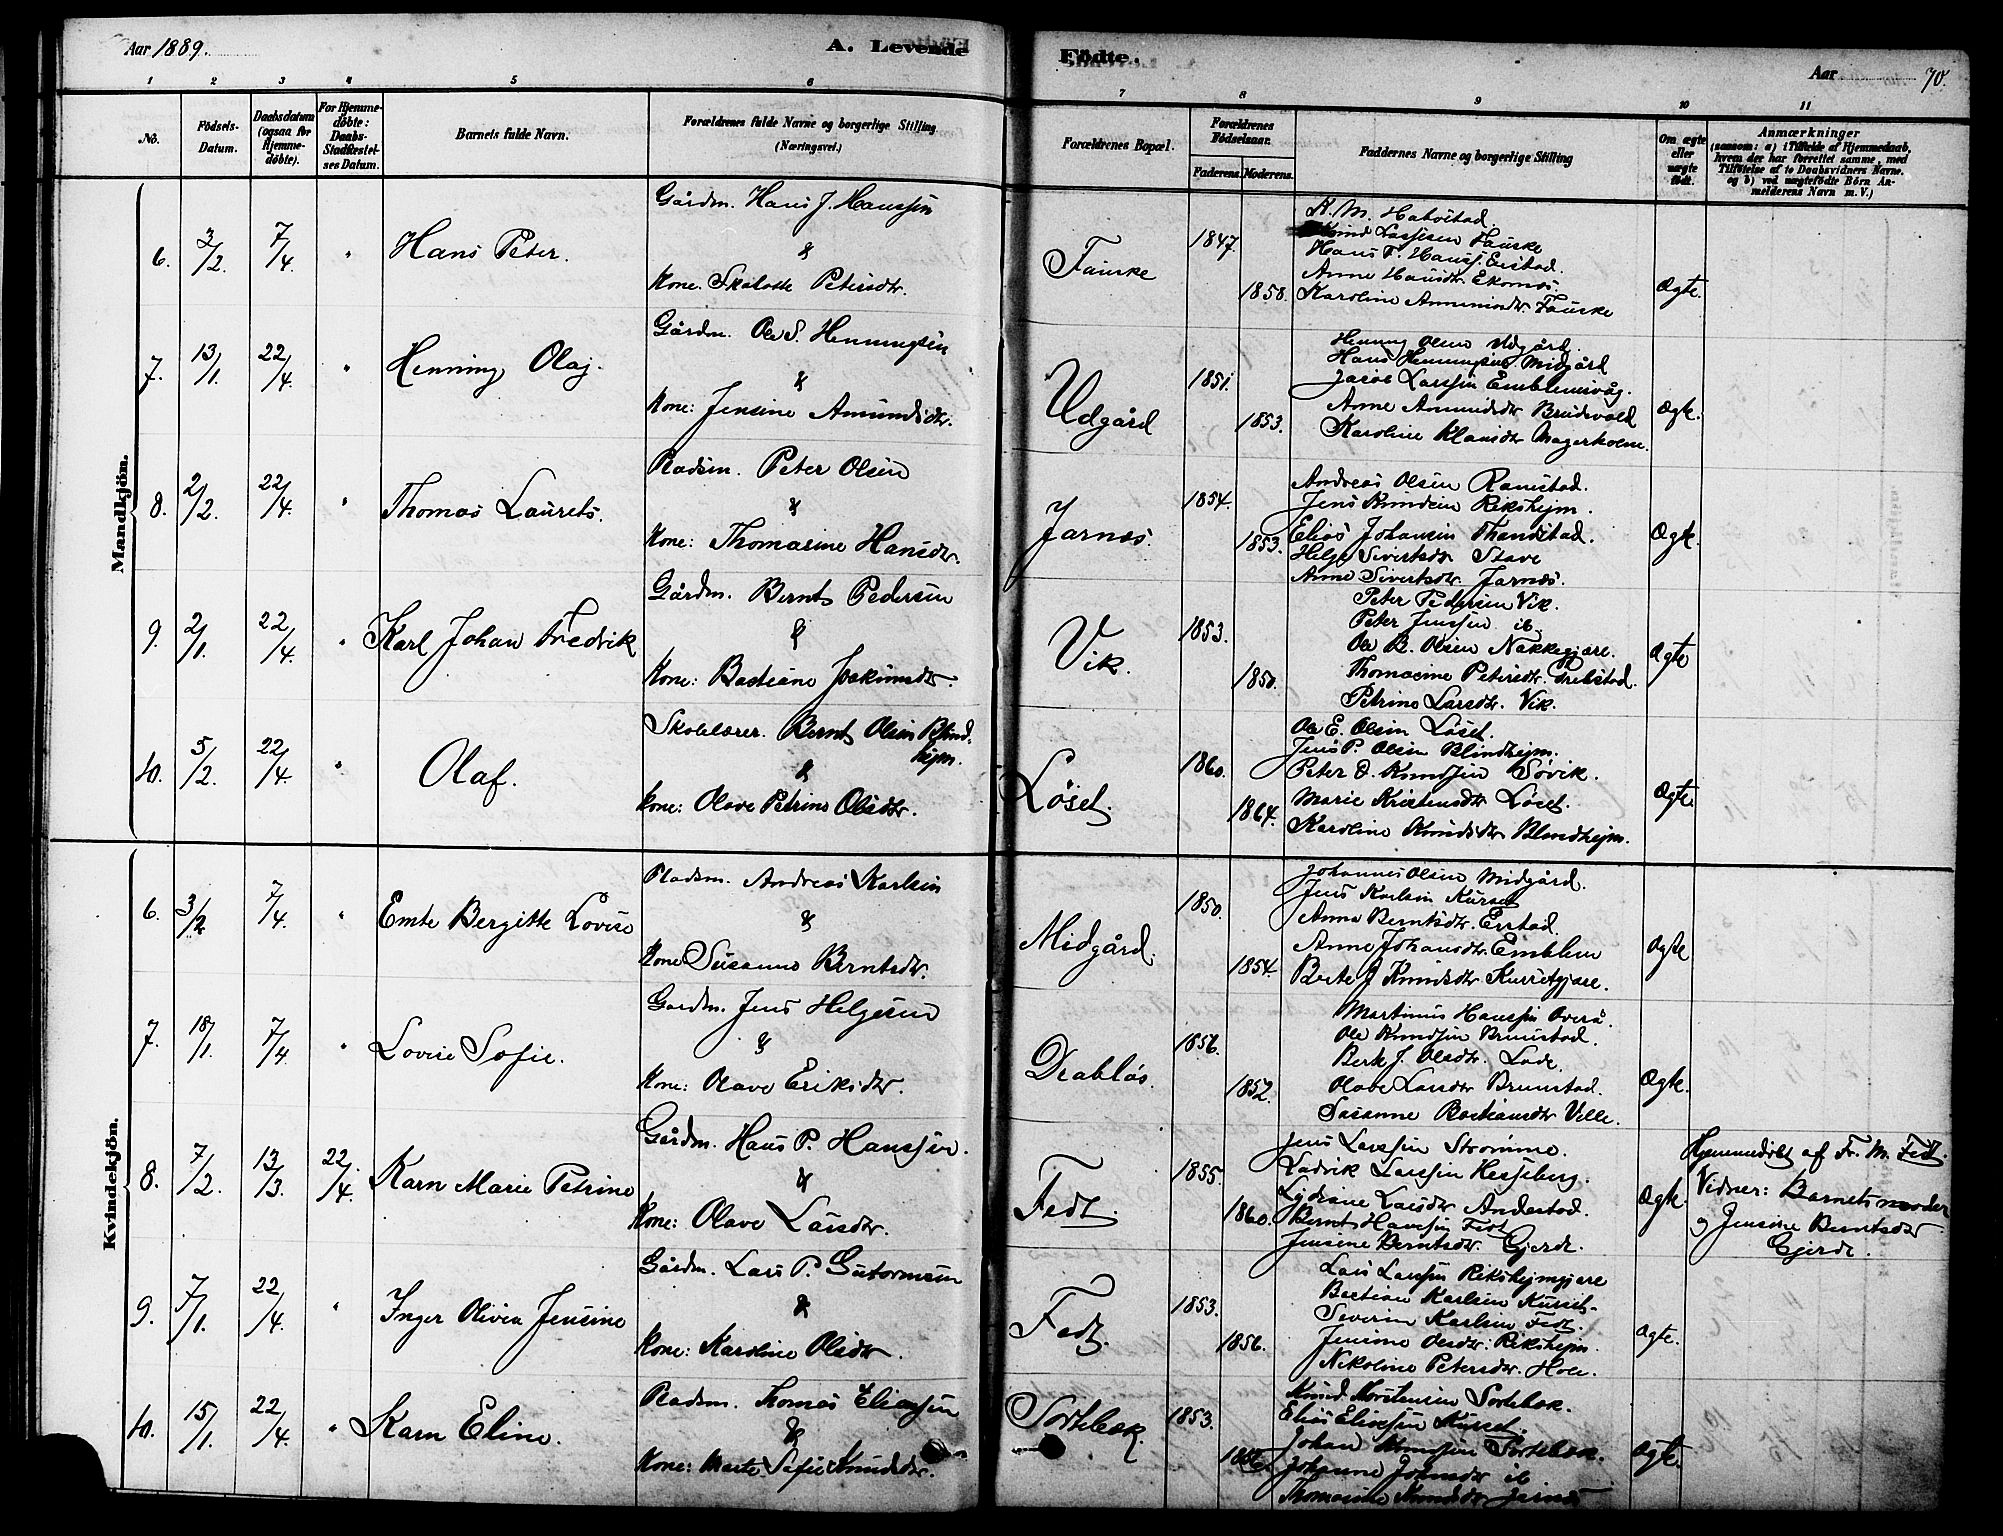 Aar 1889.
A. Levende
Födte.
Aar
70.
1 2 3 4 5 6 7 8 9 10 11
No.
Födsels-
Datum.
Daabsdatum
(ogsaa for
Hjemme-
döbte).
For Hjemme-
döbte:
Daabs-
Stadfæstel-
ses Datum.
Barnets fulde Navn.
Forældrenes fulde Navne og borgerlige Stilling
(Næringsvei.)
Forældrenes Bopæl.
Forældrenes
Födselsaar.
Faderens. Moderens.
Faddernes Navne og borgerlige Stilling
Om ægte
eller
uægte
födt.
Anmærkninger
(saasom: a) i Tilfælde af Hjemmedaab,
hvem der har forrettet samme, med
Tilföielse af to Daabsvidners Navne.
og b) ved uægtefödte Börn An-
melderens Navn m. V.)
Mandkjön.
6. 3/2. 7/4. " Hans Peter.
Gårdm. Hans J. Hanssen
&
Kone. Petersdtr.
Fauske
1847.
1850.
K. M. Hatlestad
Lassesen Fauske
Hans P. Hanss. Eirstad.
Anne Hansdtr. Ekornæs.
Karoline Fauske
Ægte.
7. 13/1. 22/4. " Henning Olaj.
Gårdm. Ole S. Henningsen
&
Kone: Jensine Amundsdtr.
Udgård
1851.
1853.
Henning Olsen Udgård.
Hans Henningsen Midgård
Jacob Larssen Emblemsvåg.
Anne Amundsdtr Brudevold
Karoline Klausdtr Magerholm.
Ægte.
8. 2/2. 22/4. " Thomas Laurets.
Pladsm. Peter Olsen
&
Kone: Thomasine Hansdtr.
Jarnæs.
1854.
1853.
Andreas Olsen Ramstad.
Jens Knudsen Rekshejm.
Elias Johansen Thandstad.
Helge Sivertsdtr Stave
Anne Sivertsdtr. Jarnæs.
Ægte.
9. 2/1. 22/4. " Karl Johan Fredrik
Gårdm. Bernt Pedersen
&
Kone: Bastiane Joakimsdtr.
Vik.
1853.
1850.
Peter Pedersen Vik.
Peter Jenssen ib.
Ole B. Olsen Nakkegjære.
Thomasine Petersdtr.
Petrine Larsdtr. Vik.
Ægte
10. 5/2. 22/4. " Olaf.
Skolelærer. Bernt Olsen Blind-
hejm.
&
Kone: Olave Petrine Olsdtr.
Løset.
1860.
1864.
Ole E. Olsen Løset.
Jens P. Olsen Blindhejm.
Peter O. Knudsen Søvik.
Marie Kristensdtr Løset.
Karoline Knudsdtr Blindhejm.
Ægte.
Kvindekjön.
6. 3/2 7/4. " Emte Bergitte Lovise
Pladsm. Andreas Karlsen
&
Kone Susanne Berntsdtr.
Midgård.
1850.
1854.
Johannes Olsen Midgård.
Jens Karlsen Kurset
Anna Berntsdtr. Eirstad.
Anne Johansdtr. Emblem
Berte J Knudsdtr Kursetgjære.
Ægte
7. 18/1. 7/4 " Lovise Sofie.
Gårdm. Jens Helgesen
&
Kone: Olave Eriksdtr.
Drabløs.
1856.
1852.
Martinus Hanssen Overå.
Ole Knudsen Brunstad.
Berte J. Olsdtr. Lade.
Olave Larsdtr Brunstad.
Susanne Bastiansdtr Velle.
Ægte.
8. 7/2. 13/3. 22/4. Karn Marie Petrine
Gårdm. Hans P. Hanssen.
&
Kone: Olave Larsdtr.
Fedt.
1855.
1860.
Jens Larssen Strømme.
Ludvik Larssen Hesseberg.
Lydiane Larsdtr Andestad.
Bernt Hanssen Fedt
Jensine Berntsdtr. Gjerde.
Ægte.
Hjemmedøbt af Fr. M. Fedt.
Vidner: Barnets moder
og Jensine Berntsdtr
Gjerde.
9. 7/1. 22/4. " Inger Olivia Jensine
Gårdm. Lars P. Gutormsen
&
Kone: Karoline Olsdtr.
Fedt.
1853.
1856.
Lars Larssen Rekshejmgjære
Bastian Karlsen Kurset
Severin Karlsen Fedt.
Jensine Olsdtr. Rekshejm.
Nikoline Petersdtr. Hole.
Ægte.
10. 15/1. 22/4. " Karn Eline.
Pladsm. Thomas Eliassen
&
Kone: Marte Sofie Knudsdtr.
Sortebæk.
1853.
Knud Thorstensen Sortebæk.
Elias Eliassen Kurset.
Johan Knudsen Sortebæk.
Johanne Johnsdtr ib
Thomasine Knudsdtr Jarnæs
Ægte.